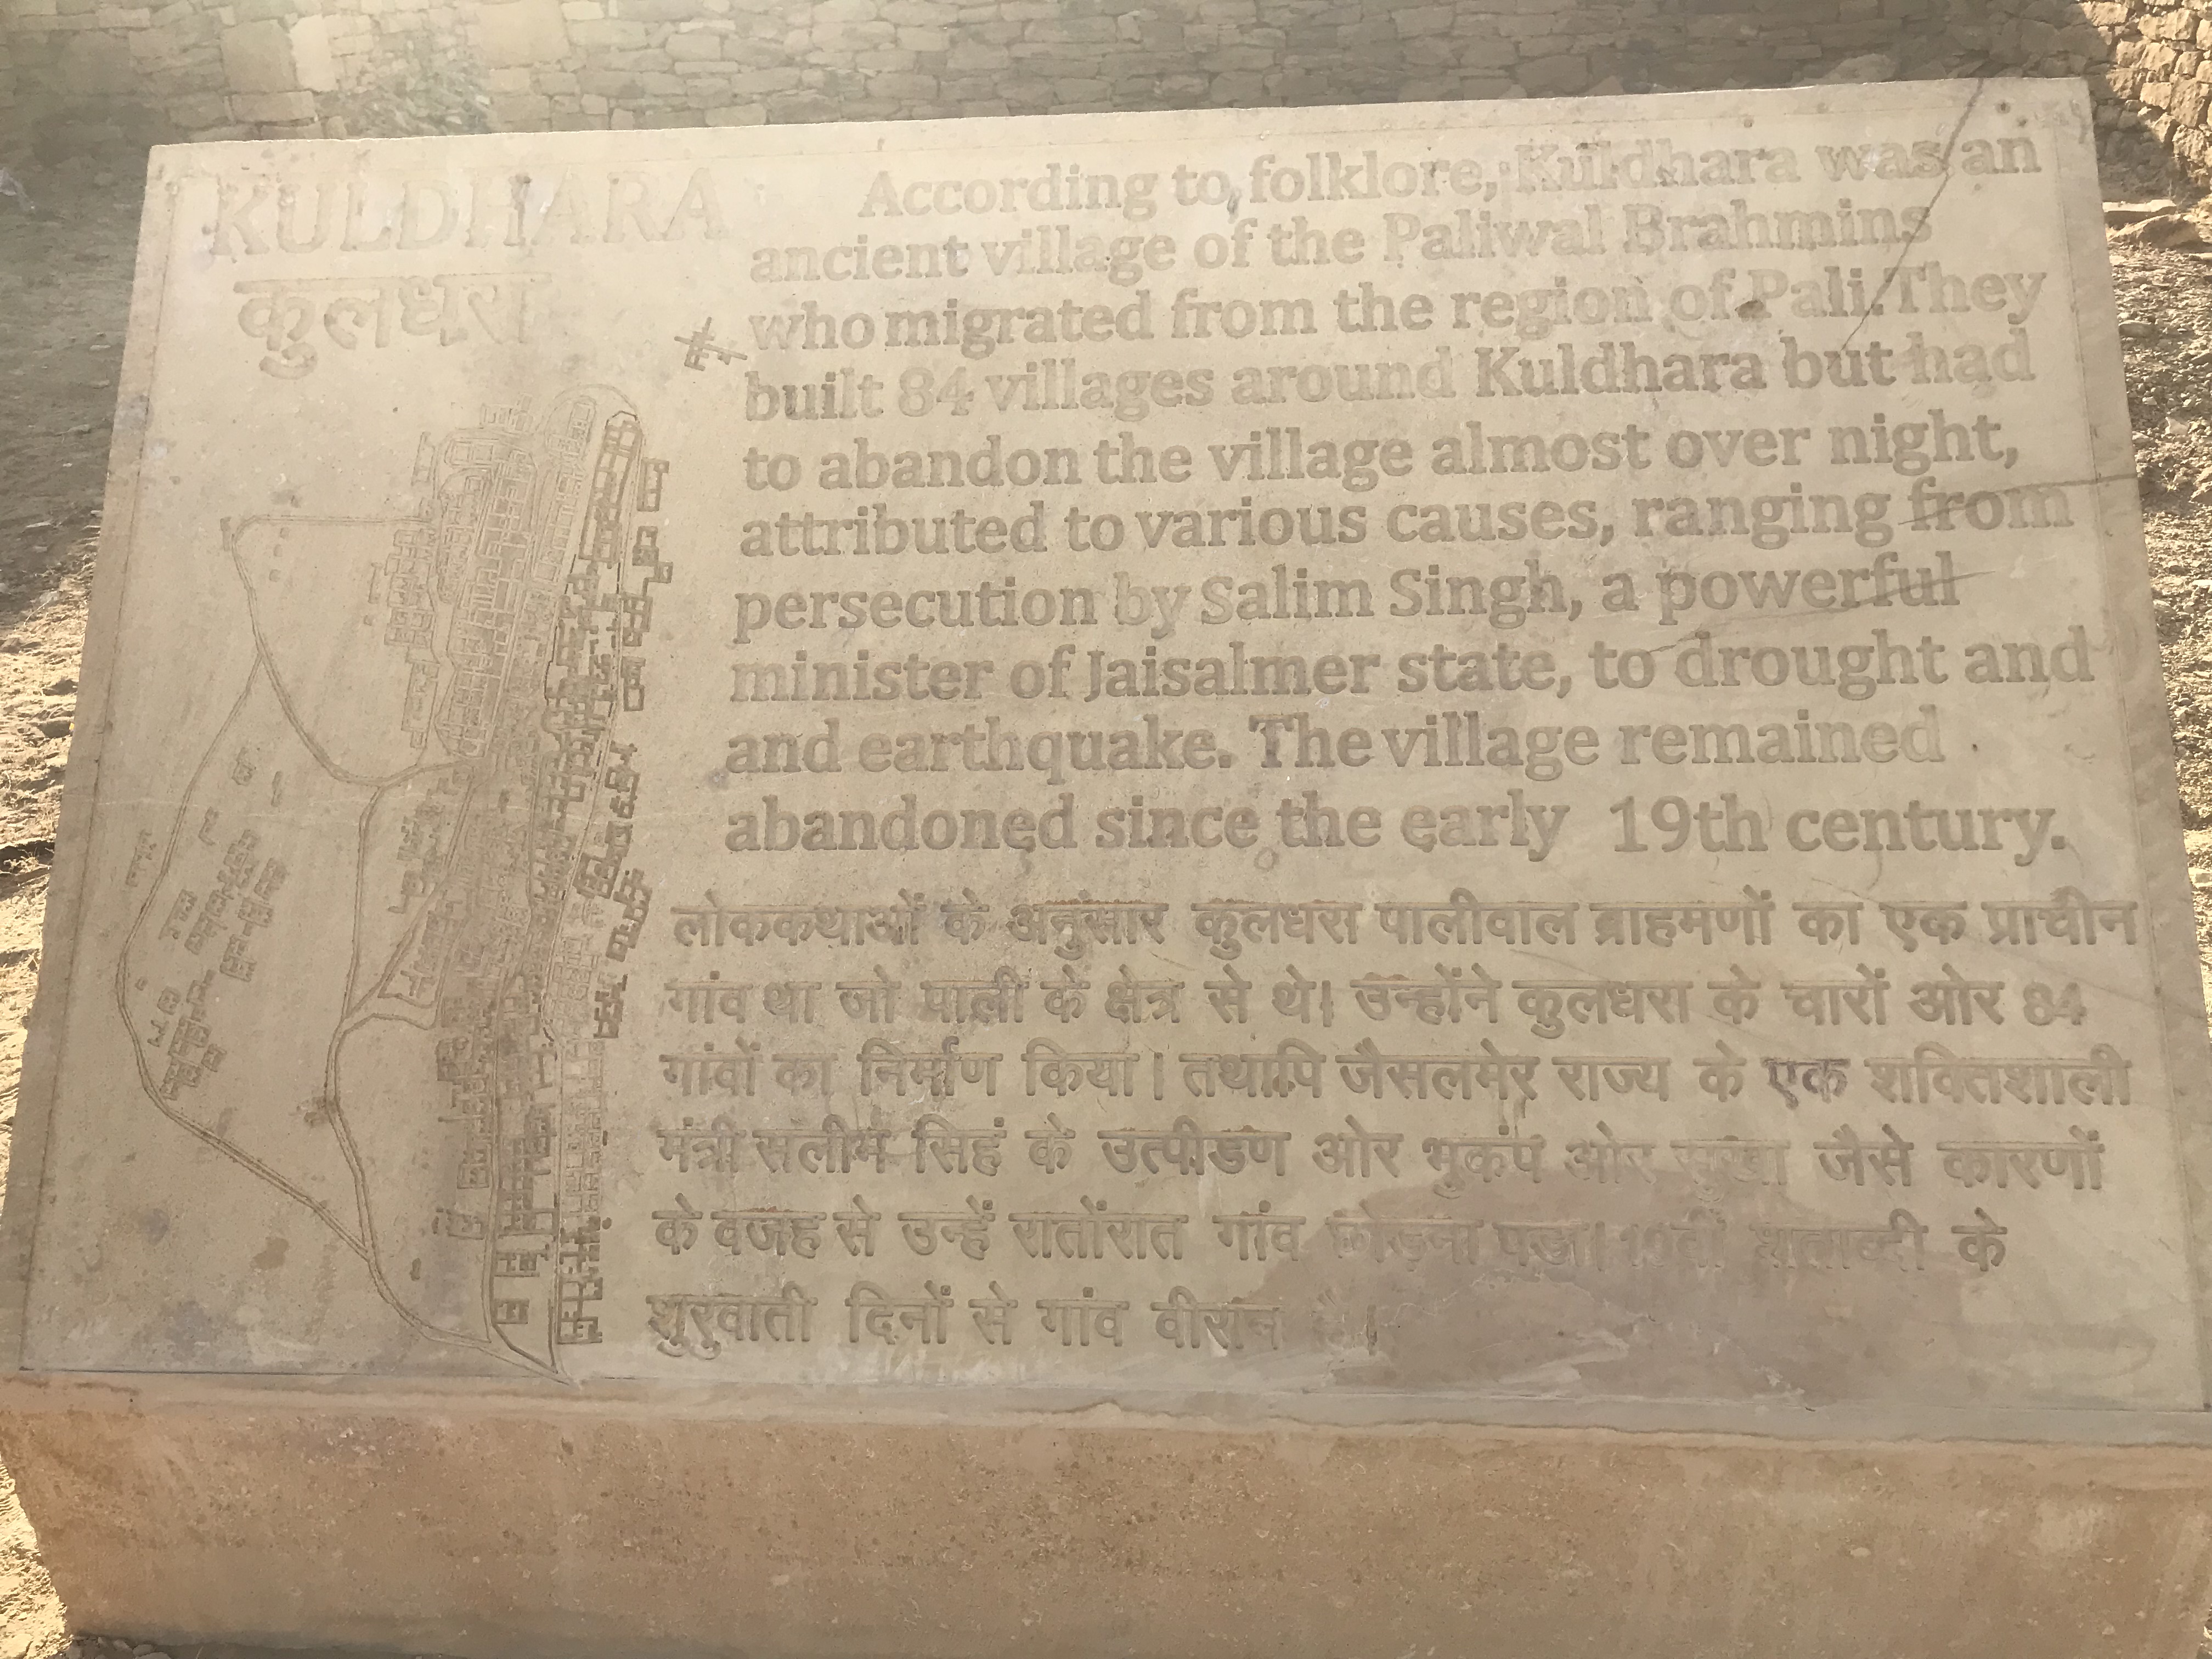 KULDHARA
कुलधरा
According to folklore, Kuldhara was an
ancient village of the Paliwal Brahmins
who migrated from the region of Pali. They
built 84 villages around Kuldhara but had
to abandon the village almost over night,
attributed to various causes, ranging from
persecution by Salim Singh, a powerful
minister of Jaisalmer state, to drought and
and earthquake. The village remained
abandoned since the early 19th century.
लोककथाओं के अनुंसार कुलधरा पालीवाल ब्राहमणों का एक प्राचीन
गांव था जो पाली के क्षेत्र से थे। उन्होंने कुलधरा के चारों ओर 84
गांवों का निर्माण किया। तथापि जैसलमेर राज्य के एक शक्तिशाली
मंत्री सलीम सिहं के उत्पीडण ओर भुकंप ओर सुखा जैसे कारणों
के वजह से उन्हें रातोंरात गांव छोड़ना पडा। 19वीं शताब्दी के
शुरुवाती दिनों से गांव वीरान है।